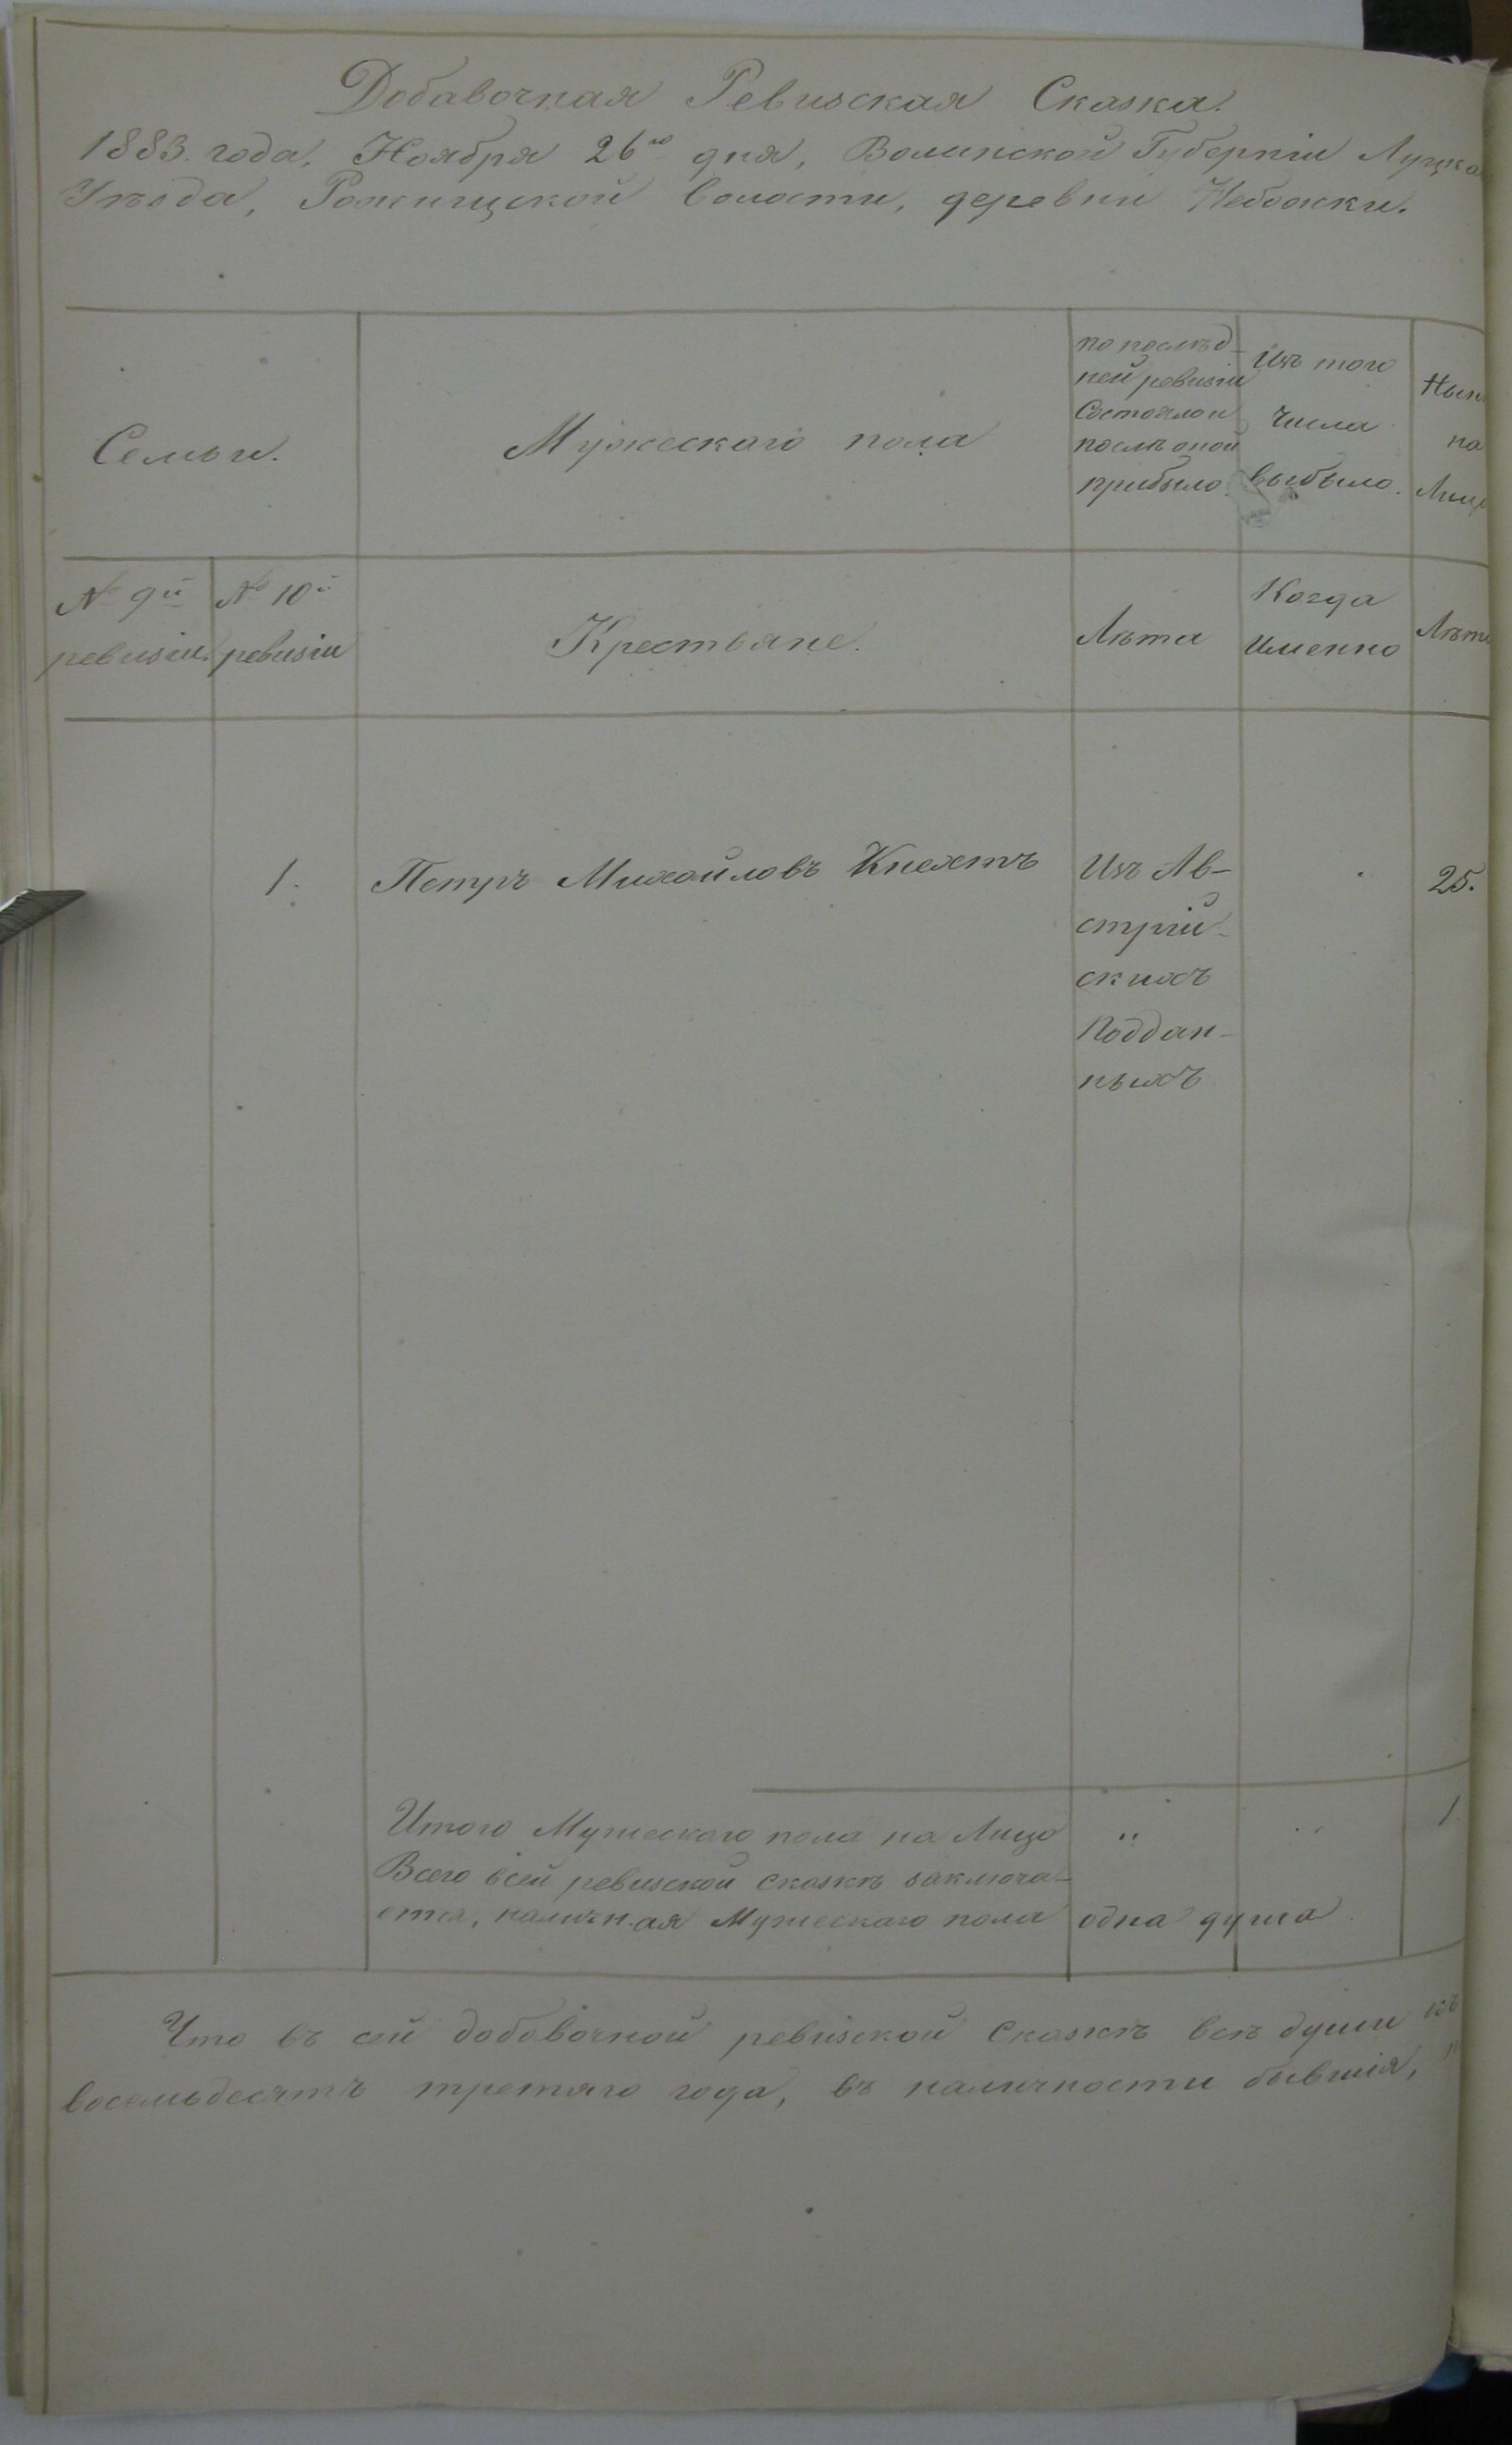 Добавочная Ревизская Сказка.
1883. года, Ноября 26го дня, Волынской Губерніи Луцка
Уѣзда, Рожищской волости, деревни Небожки.
Семьи.
Мужескаго пола
по послѣд-
ней ревизіи
Состояло и
послѣ оной
прибыло.
Изъ того
числа
выбыло.
Нын
на
Лиц
№ 9й
ревизіи.
№ 10й
ревизіи
Крестьяне.
Лѣта
Когда
Именно
Лѣта
1. Петръ Михайловъ Кнехтъ
Изъ Ав-
стрій-
скихъ
Поддан-
ныхъ
25.
Итого Мужескаго пола на Лицо " " 1.
Всего всей ревизской сказкѣ заключа-
ется, наличн.ая Мужескаго пола одна душа
Что въ сей добавочной ревизской Сказкѣ всѣ души къ
восемьдесятъ третяго года, въ наличности бывшія,